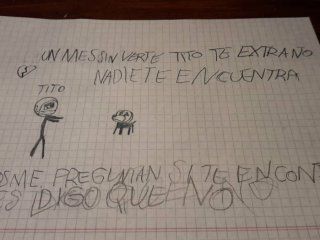 UN MES SIN VERTE TITO TE EXTRAÑO
NADIE TE ENCUENTRA
TITO
OSME PREGUNTAN SI TE ENCONT
ES DIGO QUE NO